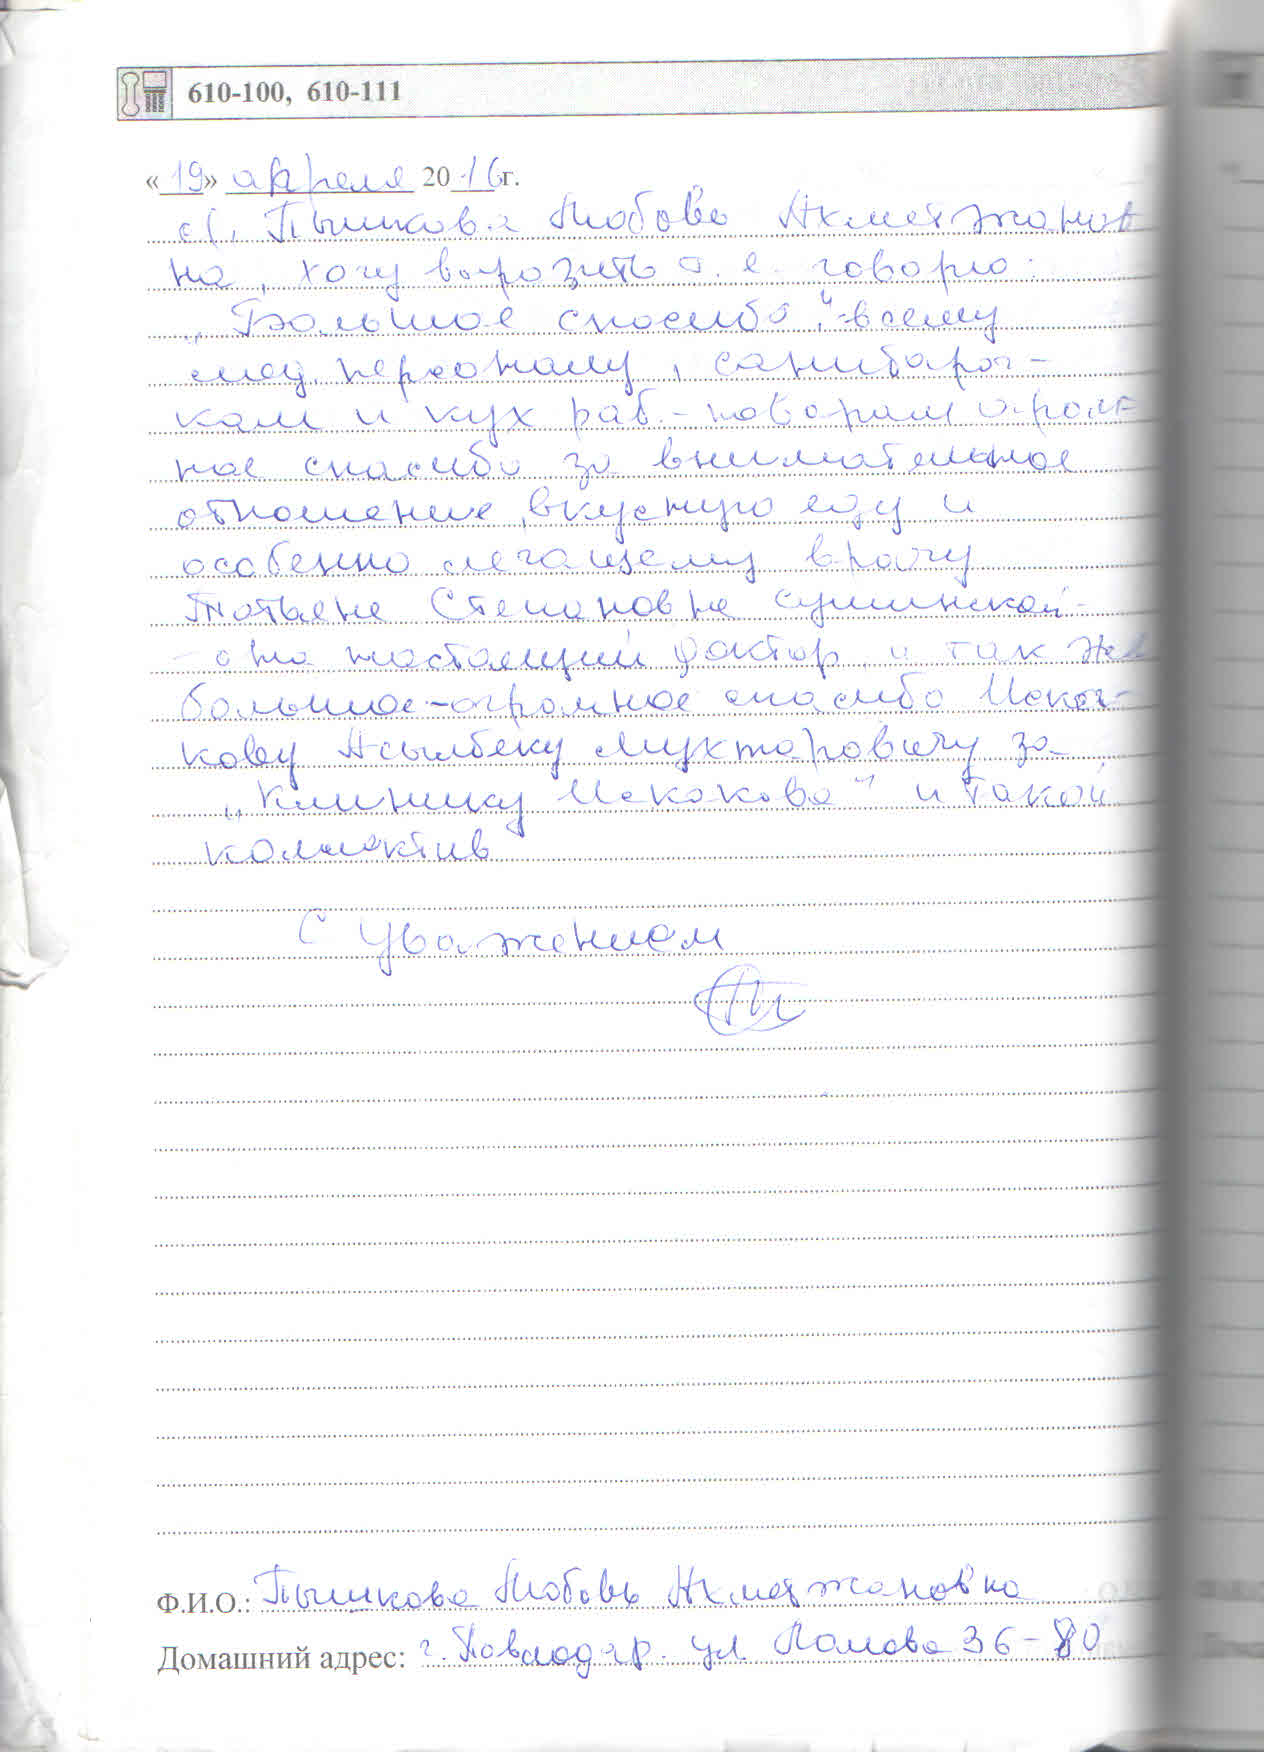 610-100, 610-111
«19» апреля 2016г.
Я, Пышкова Любовь Ахметжанов
на, хочу выразить т. е. говорю:
„Большое спасибо“,-всему
мед. персоналу, санитароч-
кам и кух раб.-поварам огром
ное спасибо за внимательное
отношение, вкусную еду и
особенно лечащему врачу
Татьяне Степановне Сушинской-
-она настоящий доктор, и так же
большое-огромное спасибо Искак-
кову Асылбеку Мухтаровичу за
„Клинику Искакова“ и такой
коллектив
С Уважением
Ф.И.О.: Пышкова Любовь Ахметжановна
Домашний адрес: г. Павлодар. ул Ломова 36-80